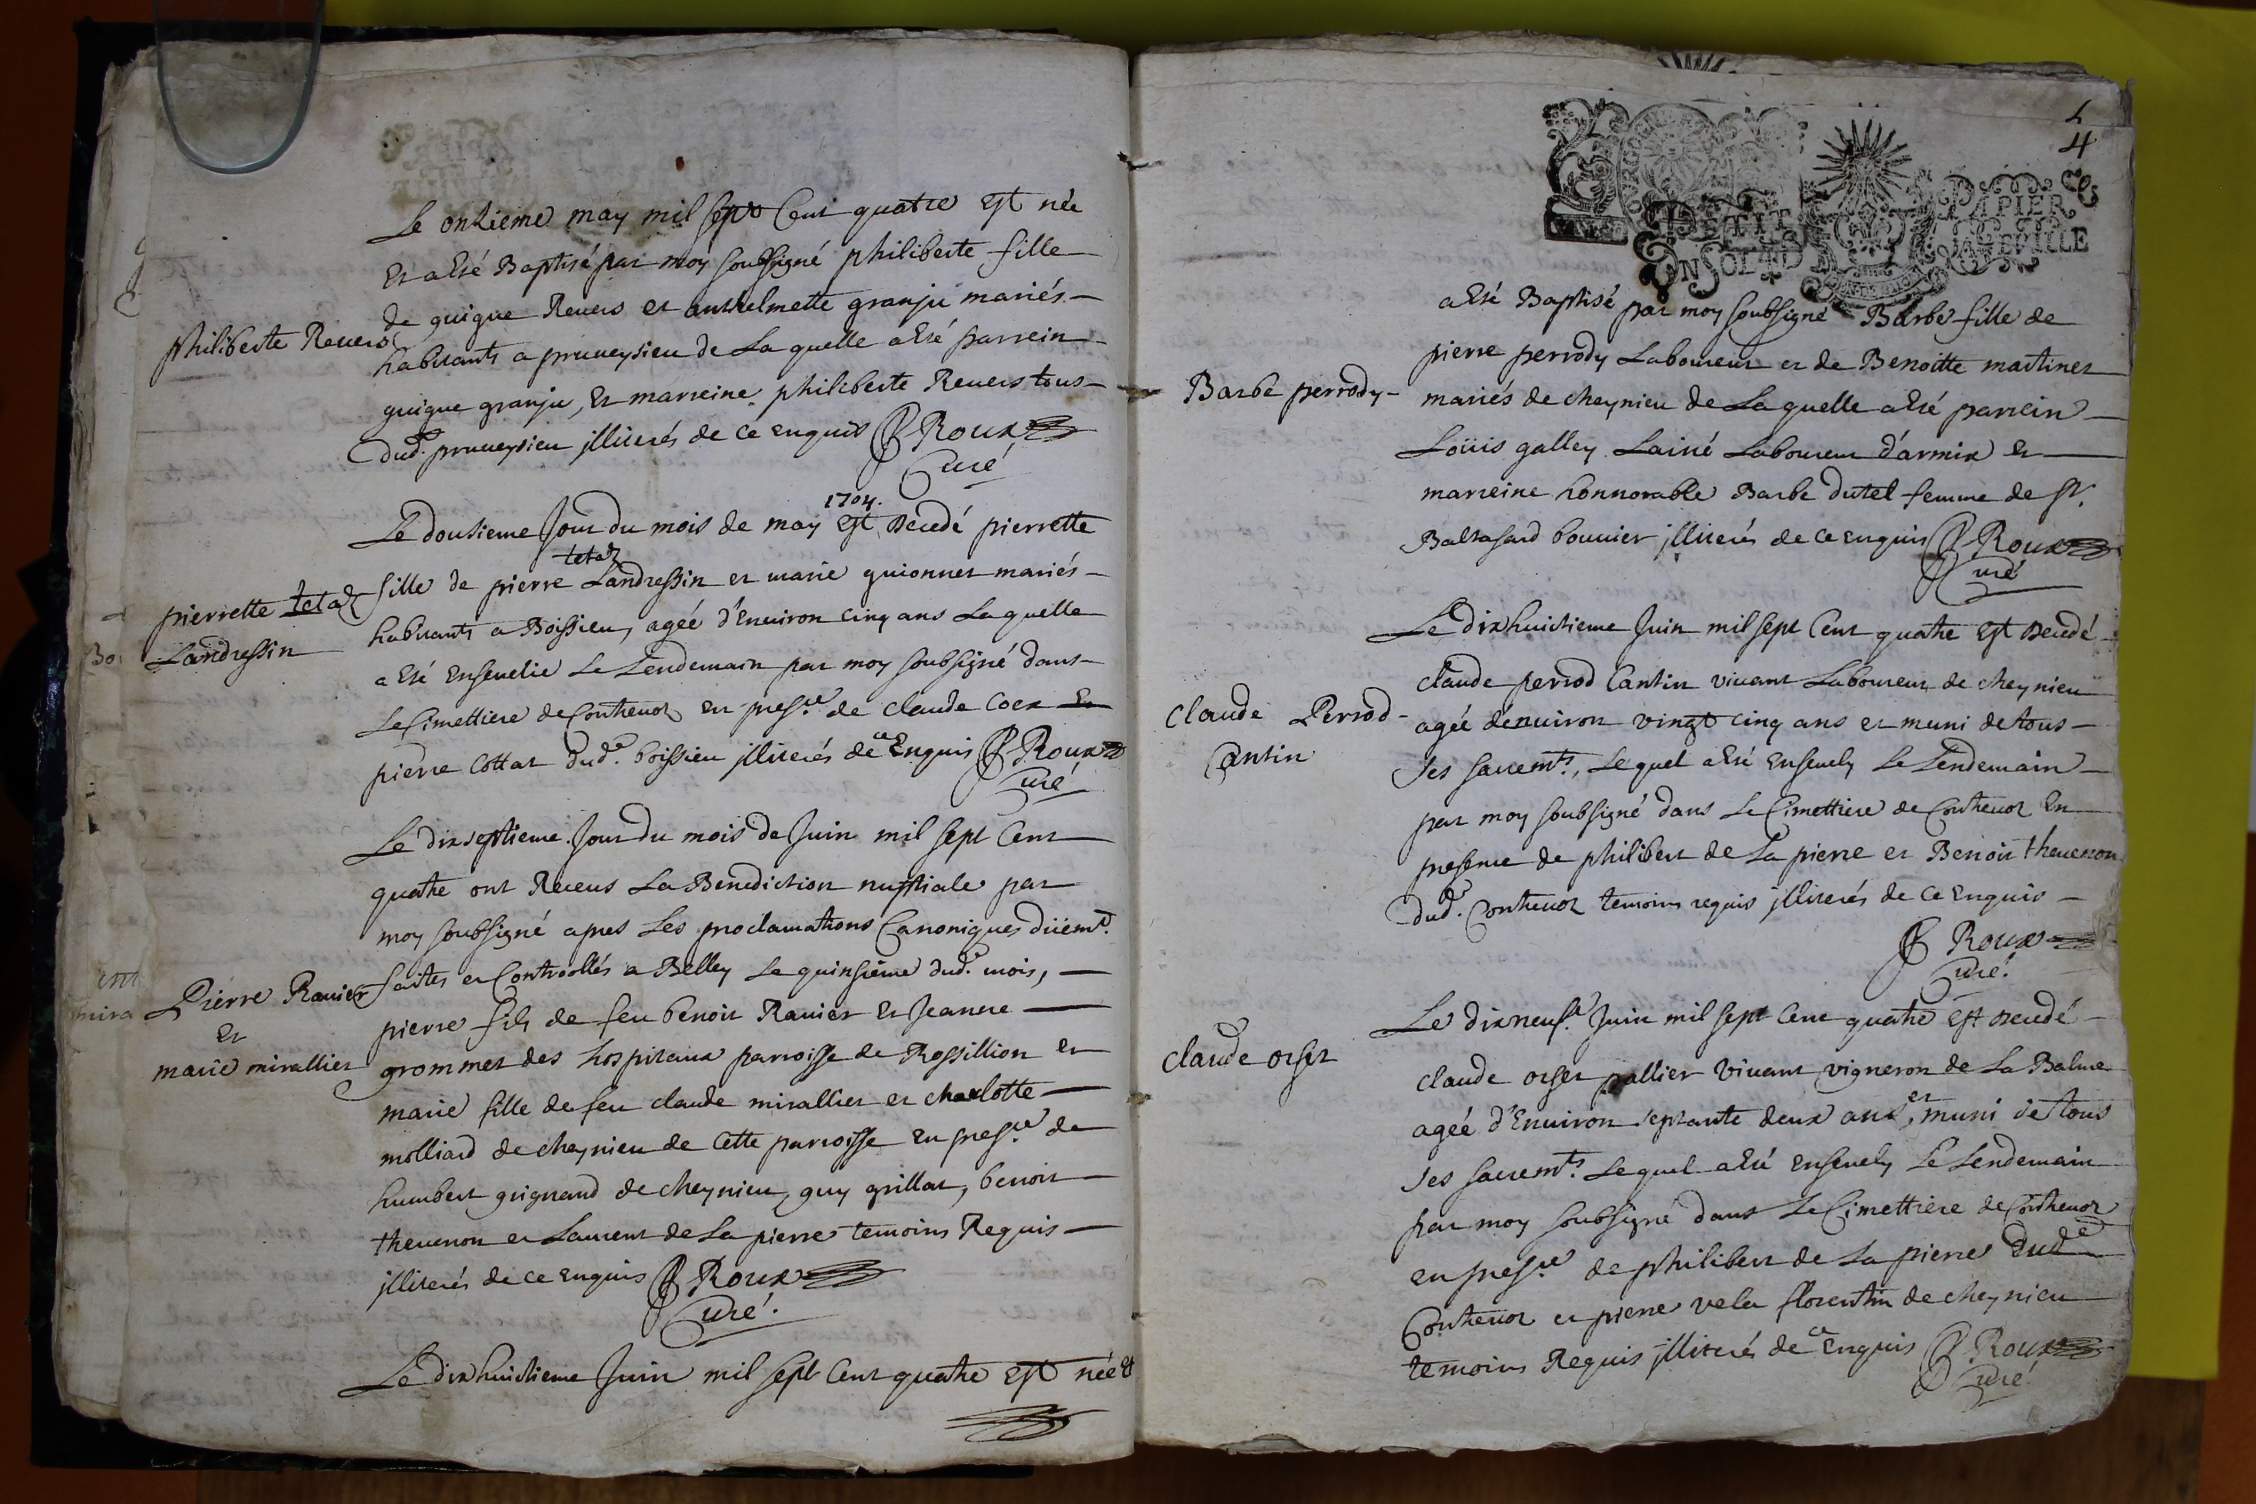 Le onzieme may mil sept Cent quatre est née
Et a Eté Baptisé par moy soubsigné philiberte fille
de guigue Revers et anthelmette granju mariés
philiberte Revers
habitants a pruveysieu de La quelle a Eté parrein
guigue granju, Et marreine philiberte Revers tous
dud. pruveysieu jlliterés de ce enquis Roux
Curé
Le dousieme Jour du mois de may 1704. est decedé pierrette
fille de pierre tetaz Landressin et marie guionnet mariés
pierrette tetaz
Landressin
habitants a Boissieu, agéé d'Environ cinq ans La quelle
a Eté Ensevelie Le Lendemain par moy soubsigné dans
Le Cimettiere de Conthevoz en presce de claude Coex Et
pierre Cottat dud. boissieu jlliterés de ce Enquis Roux
Curé
Le dixseptieme Jour du mois de Juin mil sept Cent
quatre ont Receus La Benediction nuptiale par
moy soubsigné apres Les proclamations Canoniques düemt.
faites et Controllés a Belley Le quinsiéme dud. mois,
Pierre Ravier
Et
marie mirallier
pierre fils de feu benoit Ravier Et Jeanne
grommet des hospitaux parroisse de Rossillion et
marie fille de feu claude mirallier et charlotte
molliard de cheynieu de Cette parroisse en presce de
humbert grignand de cheynieu, guy grillat, benoit
thevenon et Laurent de La pierre temoins Requis
jlliterés de ce enquis Roux
Curé.
Le dixhuictieme Juin mil sept Cent quatre est née et
4
PETIT PAPIER
UN SOL
a Eté Baptisé par moy soubsigné Barbe fille de
pierre perrody Laboureur et de Benoitte martinet
Barbe perrody
mariés de cheynieu de La quelle a Eté parrein
Loüis galley Lainé Laboureur d'armix et
marreine honnorable Barbe dutel femme de sr.
Baltasard bouvier jlliterés de ce enquis Roux
Curé
Le dixhuictieme Juin mil sept Cent quatre est decedé
claude perrod Cantin vivant Laboureur de cheynieu
Claude Perrod
Cantin
agéé d'environ vingt cinq ans et muni de tous
ses sacremts., Lequel a Eté Ensevely Le Lendemain
par moy soubsigné dans Le Cimettiere de Conthevoz En
presence de philibert de La pierre et Benoit thevenon
dud. Conthevoz temoins requis jlliterés de ce enquis
Roux
Curé.
Le dixneufe. Juin mil sept Cent quatre est decedé
claude orset
claude orset pallier vivant vigneron de La Balme
agéé d'Environ septante deux ans, et muni de tous
ses sacremts. Lequel a Eté ensevely Le Lendemain
par moy soubsigné dans Le Cimettiere de Conthevoz
en presce de philibert de La pierre dud.
Conthevoz et pierre velu florentin de cheynieu
temoins Requis jlliterés de ce enquis Roux
Curé